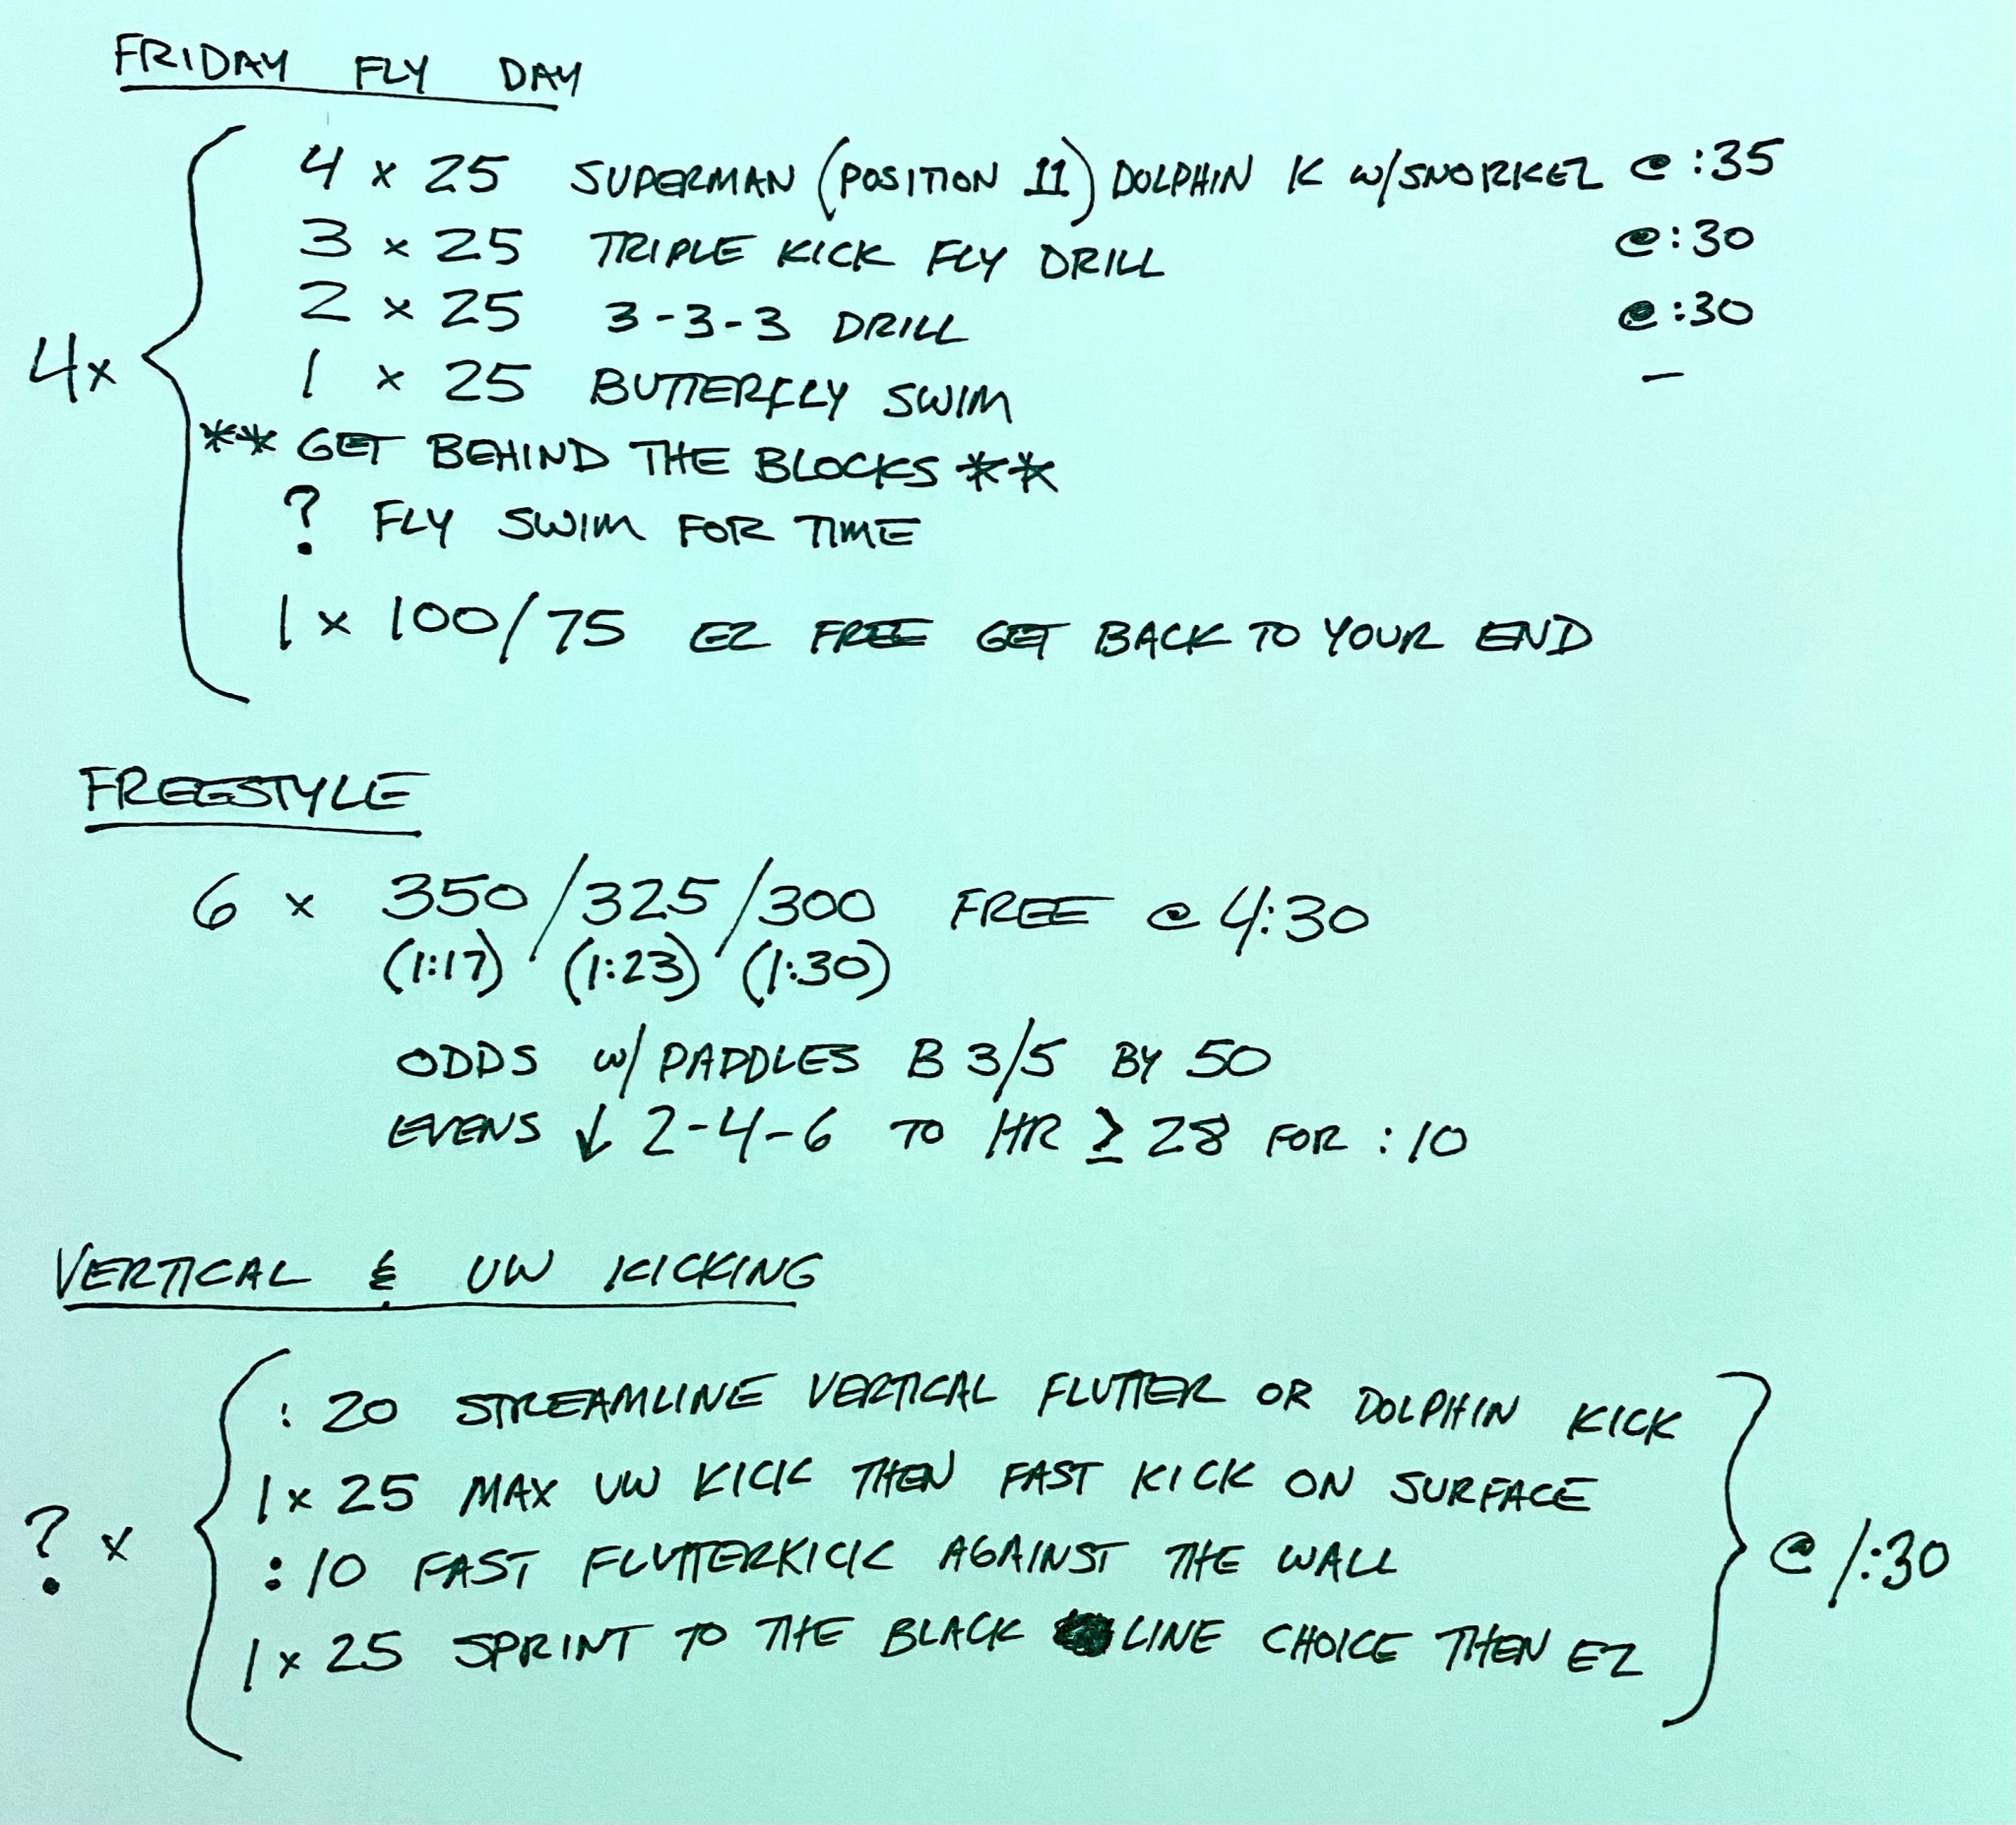 FRIDAY FLY DAY
4 x 25 SUPERMAN (POSITION 11) DOLPHIN K W/SNORKEL @ :35
3 x 25 TRIPLE KICK FLY DRILL @ :30
2 x 25 3-3-3 DRILL @ :30
4x
1 x 25 BUTTERFLY SWIM –
** GET BEHIND THE BLOCKS **
? FLY SWIM FOR TIME
1 x 100/75 EZ FREE GET BACK TO YOUR END
FREESTYLE
6 x 350/325/300 FREE @ 4:30
(1:17) (1:23) (1:30)
ODDS w/ PADDLES B 3/5 BY 50
EVENS ↓ 2-4-6 TO HR ≥ 28 FOR :10
VERTICAL & UW KICKING
:20 STREAMLINE VERTICAL FLUTTER OR DOLPHIN KICK
1 x 25 MAX UW KICK THEN FAST KICK ON SURFACE
? x
:10 FAST FLUTTERKICK AGAINST THE WALL
@ 1:30
1 x 25 SPRINT TO THE BLACK LINE CHOICE THEN EZ